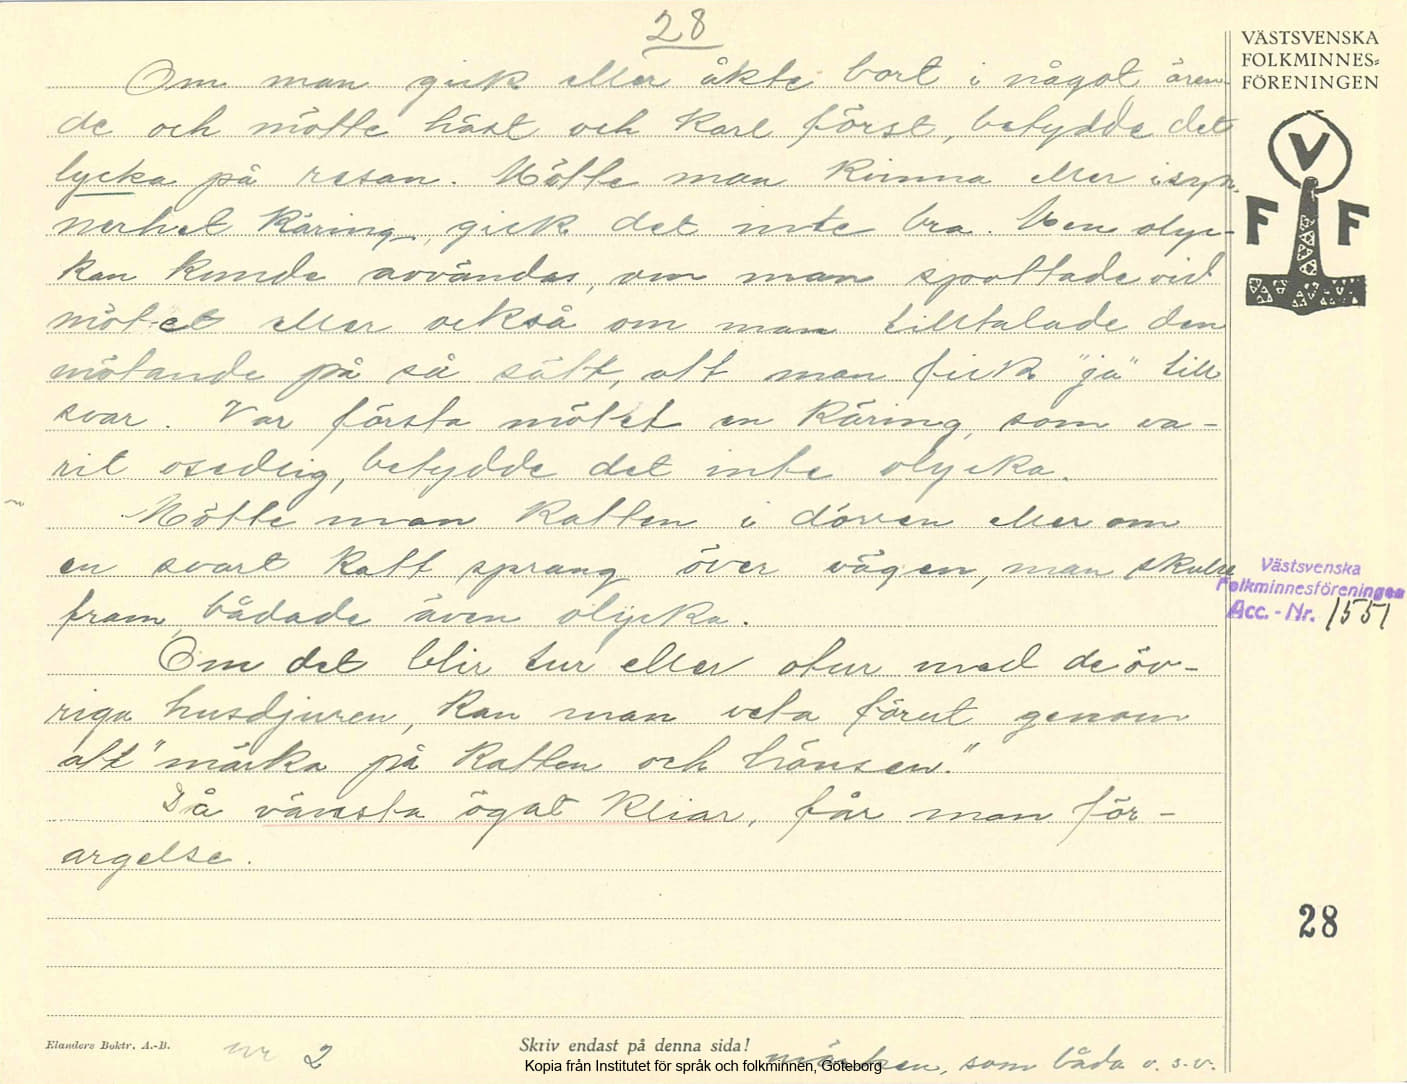 28
Om man gick eller åkte bort i något ären-
de och mötte häst och karl först, betydde det
lycka på resan. Mötte man kvinna eller i syn-
nerhet käring, gick det inte bra. Men olyc-
kan kunde avvändas, om man spottade vid
mötet eller också om man tilltalade den
mötande på så sätt, att man fick "ja" till
svar. Var första mötet en käring, som va-
rit osedlig, betydde det inte olycka.
Mötte man katten i dörren eller om
en svart katt sprang över vägen, man skulle
fram, bådade även olycka.
Om det blir tur eller otur med de öv-
riga husdjuren, kan man veta förut genom
att "märka på katten och hönsen."
Då vänstra ögat kliar, får man för-
argelse.
VÄSTSVENSKA
FOLKMINNES=
FÖRENINGEN
V
F F
Västsvenska
Folkminnesföreningen
Acc.-Nr. 1551
28
Elanders Boktr. A.-B.
nr 2
Skriv endast på denna sida!
Kopia från Institutet för språk och folkminnen, Göteborg
märken, som båda o. s. v.